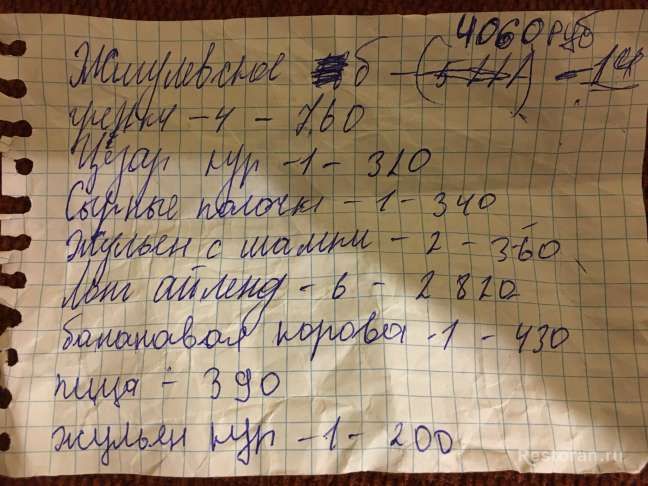 4060 руб
Жигулевское б - -14
гренки - 4 - 760
Цезар кур - 1 - 320
Сырные палочки - 1 - 340
Жульен с шампи - 2 - 360
Лонг айленд - 6 - 2 820
банановая корова - 1 - 430
пицца - 390
жульен кур - 1 - 200
Restoran.ru